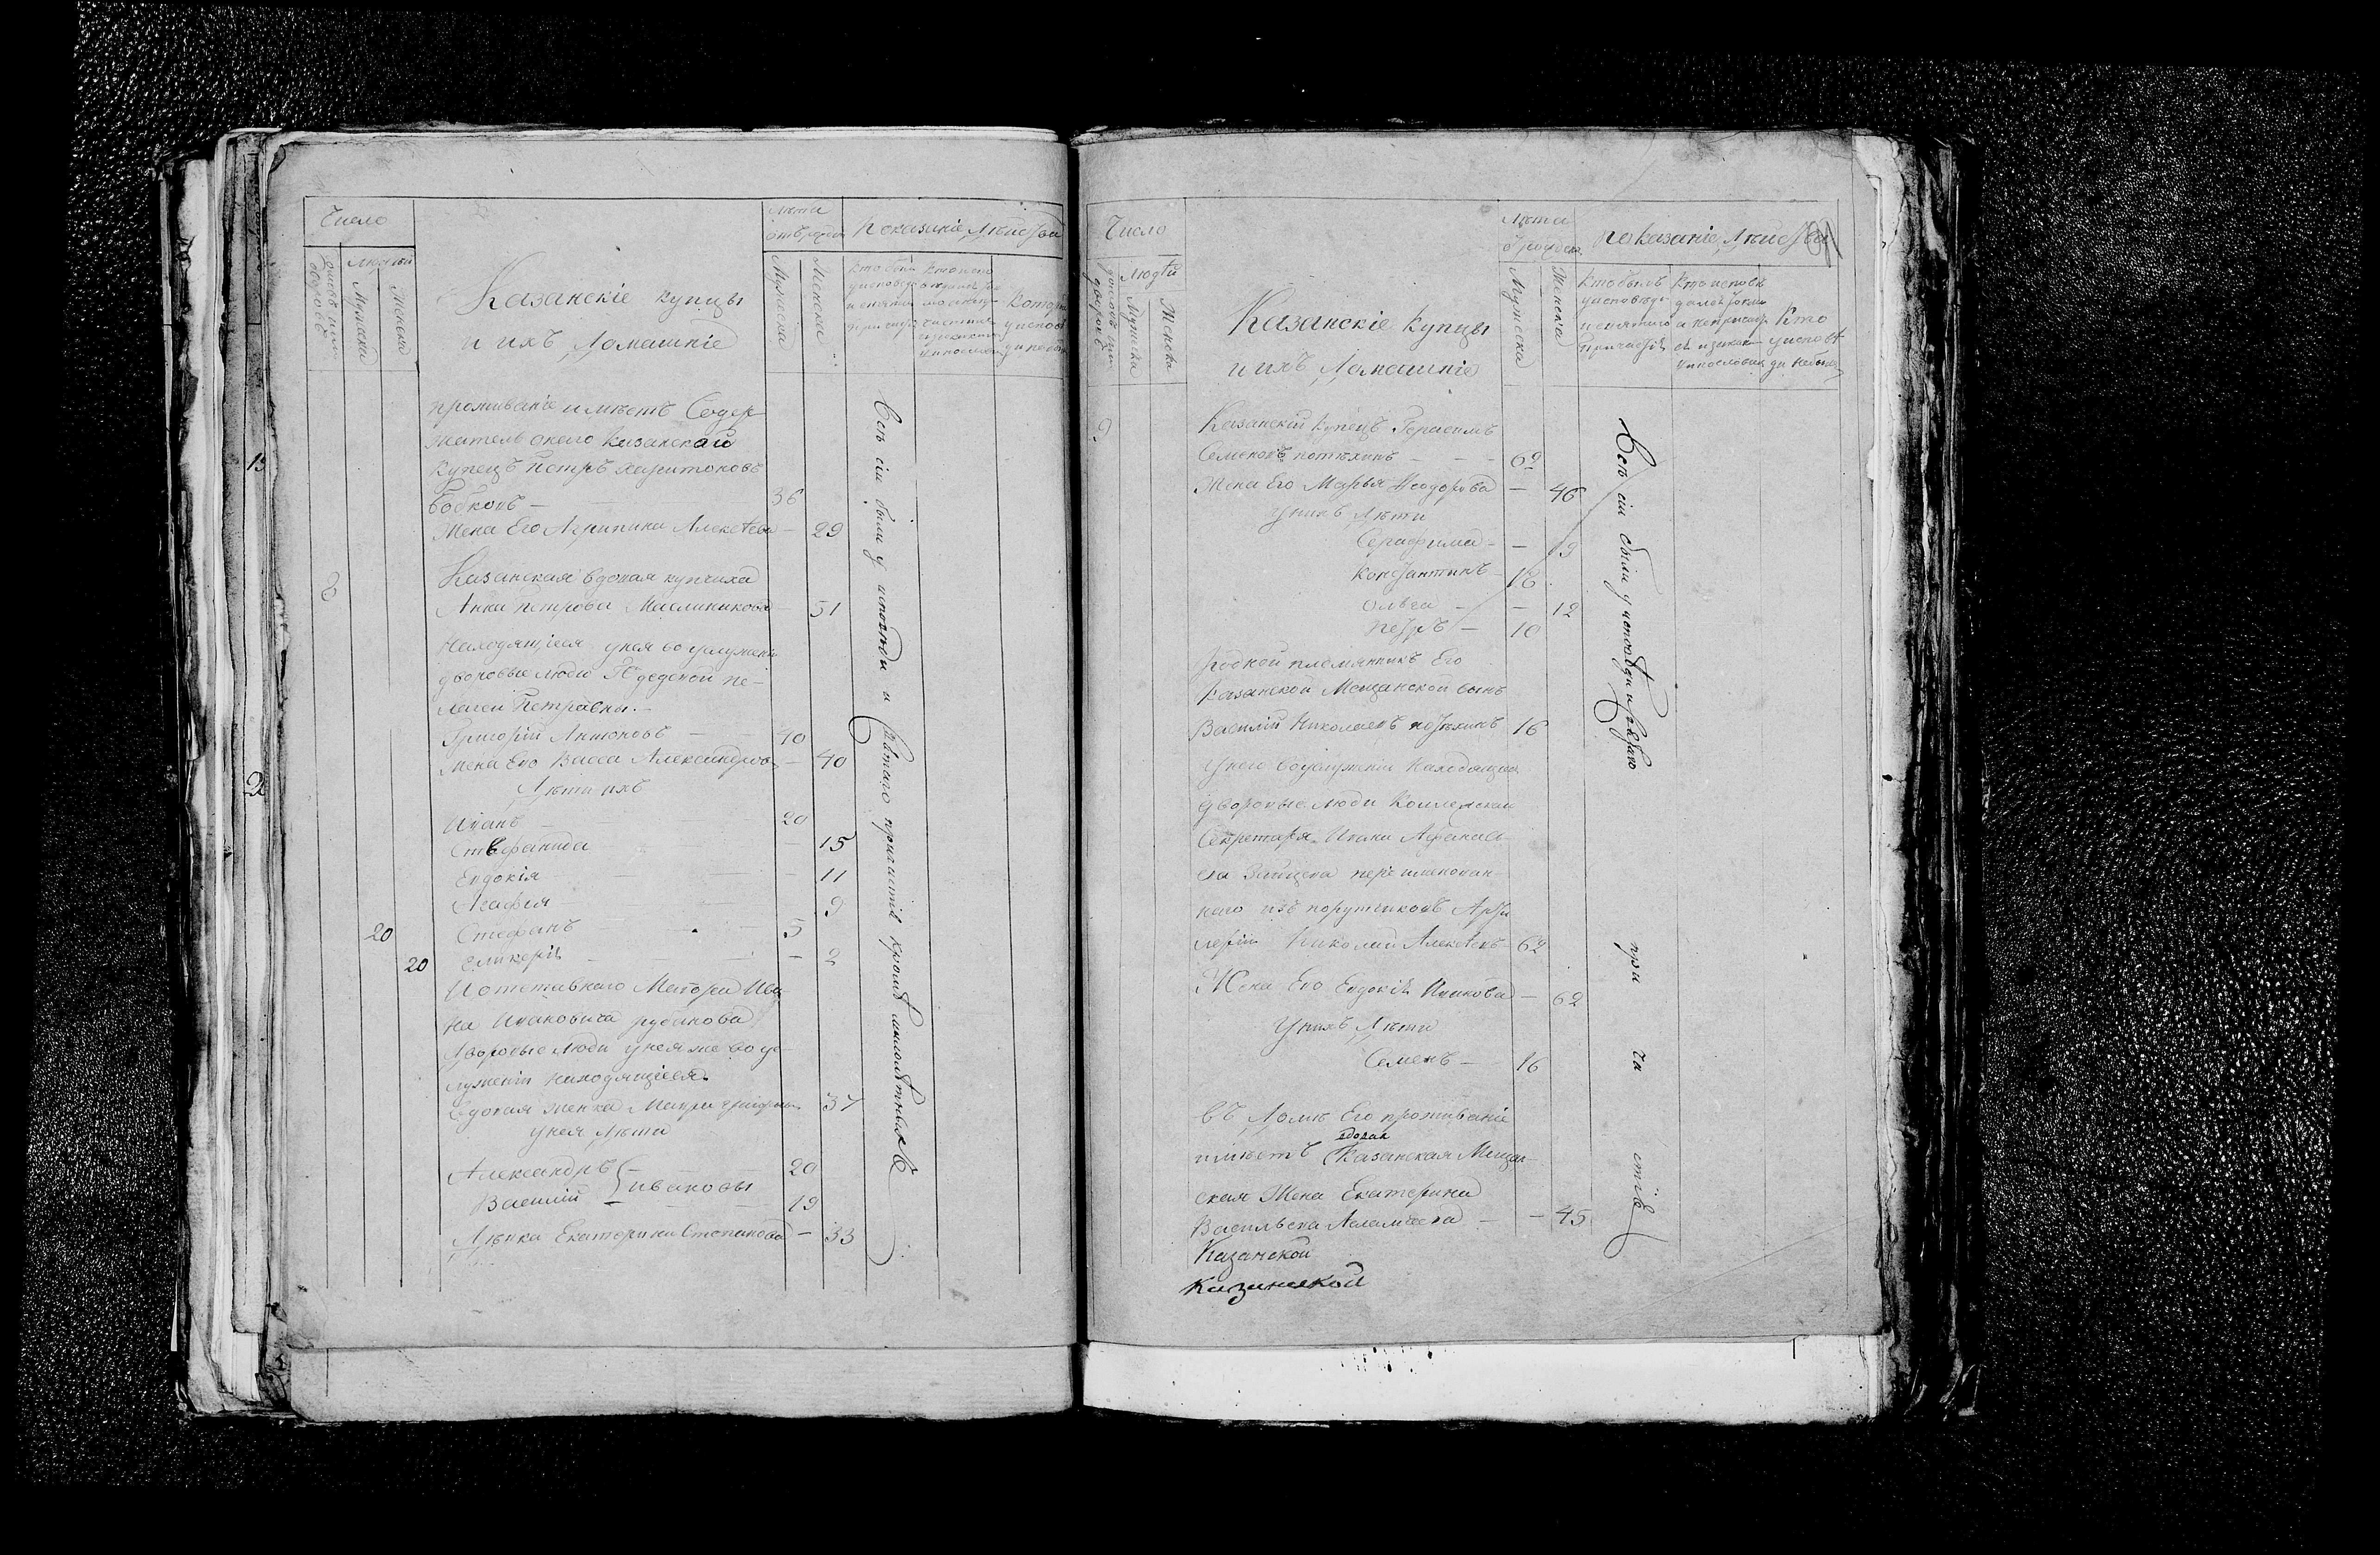 Число
Людей
Мужеска
Женска
Казанскіе купцы
и ихъ Домашніе
Лѣта
отъ рожд
Мужеска
Женска
Показаніе Дѣйства
проживаніе имѣетъ Содер-
жатель онаго Казанскай
купецъ Петръ Харитоновъ
Бобковъ — 36
Жена Его Агрипина Алексѣева — 29
Казанская вдовая купчиха
Анна Петрова Маслиникова — 51
Находящіеся у нея во услужени
дворовые люди
лагеи Петровны. —
Григорій Антоновъ — 40
Жена Его Васса Александрова — 40
Дѣти ихъ
Иванъ 20
Стефанида — 15
Евдокія — 11
Агафья 9
20 Стефанъ — 5
20 Гликерія — 2
И отставнаго Маіора Ива
на Ивановича рубанова
Дворовые люди у нея же во ус-
луженіи находящіеся.
Вдовая женка 37
у нея дѣти
Александръ — 20
Василій ивановы — 19
Дѣвка Екатерина Степанова — 33
Всѣ сіи были у исповѣди и святаго причастія кромѣ малолѣтныхъ
Число
Людѣй
Мужска
Женска
Казанскіе купцы
и ихъ Домашніе
Лѣта
Мужеска
Женска
показаніе Дѣйства
Кто былъ
Казанскій Купецъ Герасимъ
Семеновъ потѣхинъ — — 62
Жена Его Марья Ѳеодорова — 46
У нихъ Дѣти
Серафима — — 19
Константинъ — 16
Ольга — — 12
Петръ — 10
родной племянникъ Его
Казанской Мещанской сынъ
Василій Николаевъ потѣхинъ 16
У него во услуженіи Находящіеся
дворовые люди Коллежскаго
Секретаря Ивана Афанась
ева Зайцева переименован-
наго изъ порутчиковъ Арти
леріи Николай Алексѣевъ — 62
Жена Его Евдокія Иванова — 62
У нихъ Дѣти
Семенъ — 16
Въ Домѣ Его проживаніе
вдовая
имѣетъ Казанская Мещан-
ская Жена Екатерина
Васильева — — 45
Казанской
Казанской
Всѣ сіи были у исповѣди и святаго при ча стія